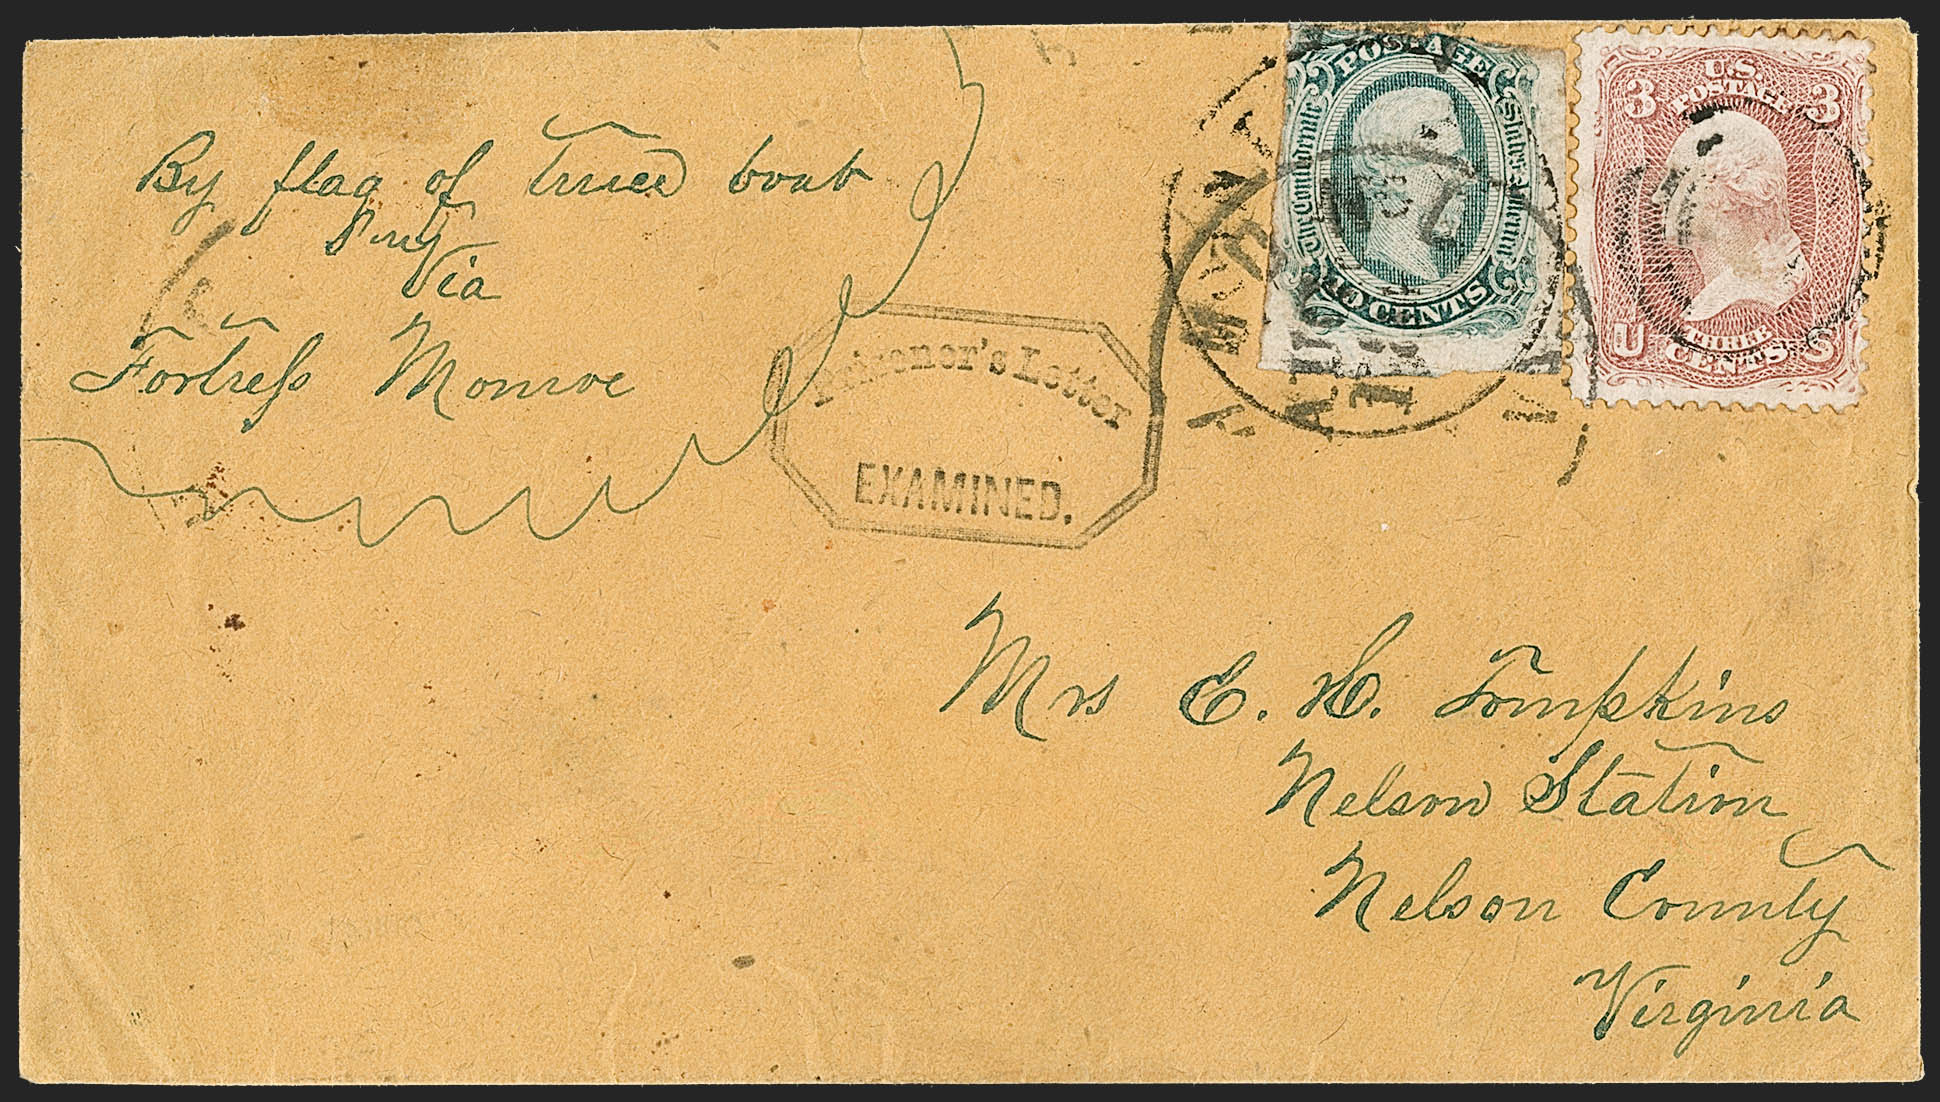 By flag of truce boat
Via
Fortress Monroe
Prisoner's Letter
EXAMINED.
POSTAGE
The Confederate States of America
10 CENTS
AUG
3 U.S. 3
POSTAGE
U THREE S
CENTS
Mrs E. H. Tompkins
Nelson Station
Nelson County
Virginia